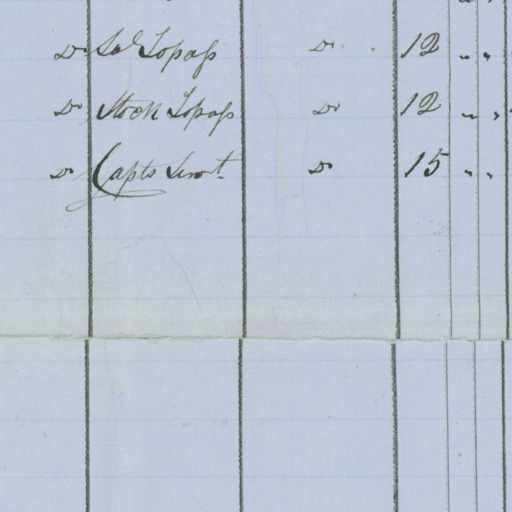 Do Sal Topass Do 12 " "
Do Stock Topass Do 12 " "
Do Capts Servt. Do 15 " "